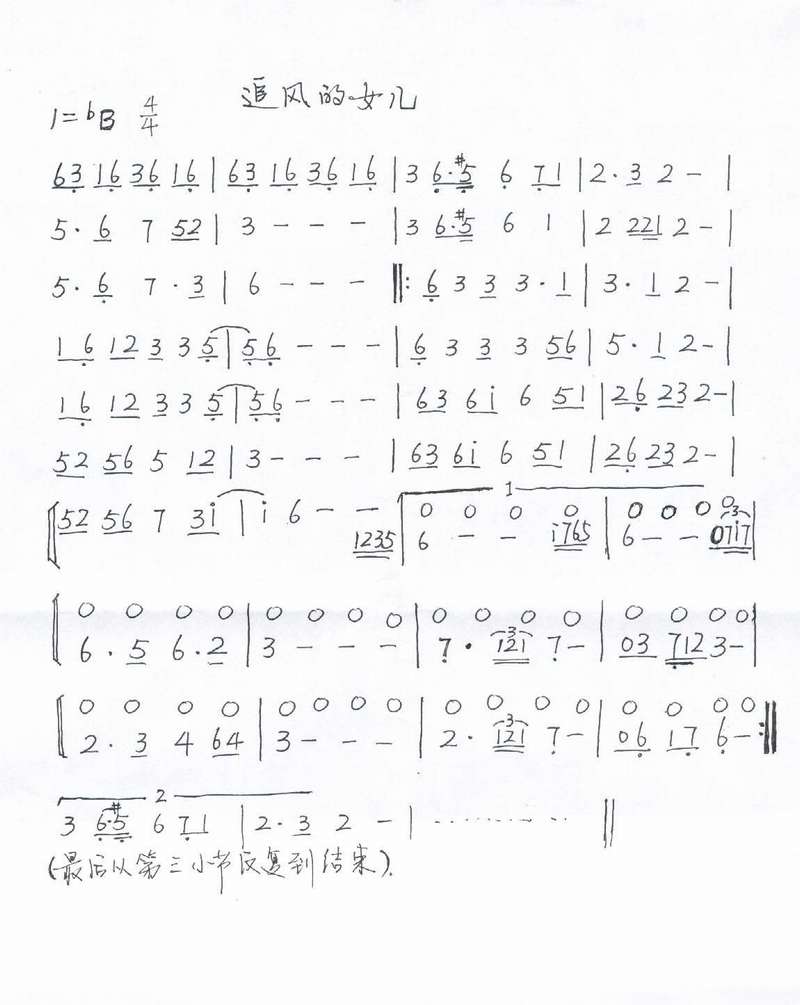 追风的女儿
1=ᵇB 4/4
63 16 36 16 | 63 16 36 16 | 3 6·#5 6 71 | 2·3 2 - |
5·6 7 52 | 3 - - - | 3 6·#5 6 1 | 2 221 2 - |
5·6 7·3 | 6 - - - ‖: 6 3 3 3·1 | 3·1 2 - |
16 12 3 3 5 | 56 - - - | 6 3 3 3 56 | 5·1 2 - |
16 12 3 3 5 | 56 - - - | 63 6i 6 51 | 26 23 2 - |
52 56 5 12 | 3 - - - | 63 6i 6 51 | 26 23 2 - |
1
52 56 7 3i | i 6 - - | 0 0 0 0 | 0 0 0 0 |
1235 | 6 - - i765 | 6 - - 07i7 |
3
0 0 0 0 | 0 0 0 0 | 0 0 0 0 | 0 0 0 0 |
6·5 6·2 | 3 - - - | 7· 121 7 - | 03 712 3 - |
3
0 0 0 0 | 0 0 0 0 | 0 0 0 0 | 0 0 0 0
2·3 4 64 | 3 - - - | 2· 121 7 - | 06 17 6 - :‖
3
2
3 6·#5 6 71 | 2·3 2 - | ............ ‖
(最后从第三小节反复到结束).